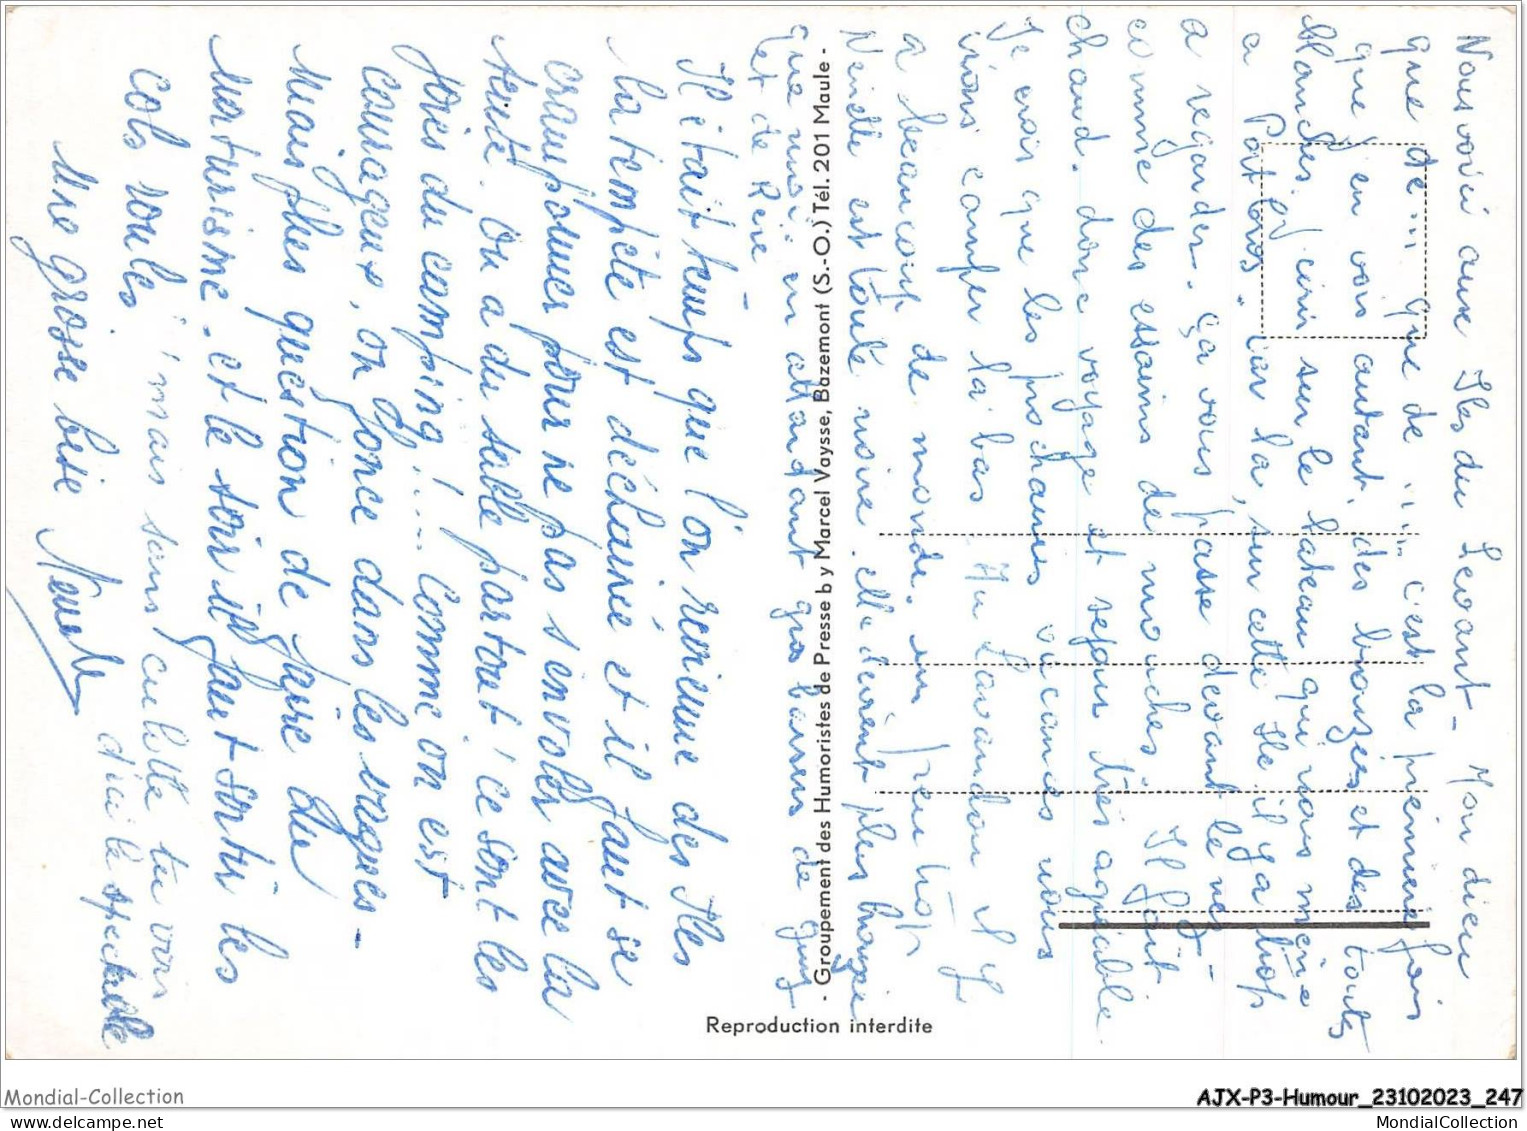 Nous voici aux Iles du Levant - Mon dieu
que de ... que de ... c'est la première fois
que j'en vois autant, des bronzées et des toutes
blanches. J'ecris sur le bateau qui nous mène
a Port Cros. Car là, sur cette Ile il y a trop
a regarder. Ça vous passe devant le nez
comme des essaims de mouches. Il fait
chaud. donc voyage et sejour très agréable.
Je crois que les prochaines vacances nous
irons camper la bas. Au Lavandou il y
a beaucoup de monde. un peu trop
est toute noire. elle devient plus bronzée
que moi. en attendant gros baisers de
et de René -
Il était temps que l'on revienne des Iles
la tempête est déchainée et il faut se
cramponner pour ne pas s'envoler avec la
tente. On a du sable partout ce sont les
joies du camping !... Comme on est
courageux, on fonce dans les vagues -
Mais plus question de faire du
naturisme - et le soir il faut sortir les
cols roulés
! mais sans culotte tu vois
d'ici le spectacle
Une grosse bise
- Groupement des Humoristes de Presse b y Marcel Vaysse, Bazemont (S.-O.) Tél. 201 Maule -
Reproduction interdite
Mondial-Collection
AJX-P3-Humour_23102023_247
MondialCollection